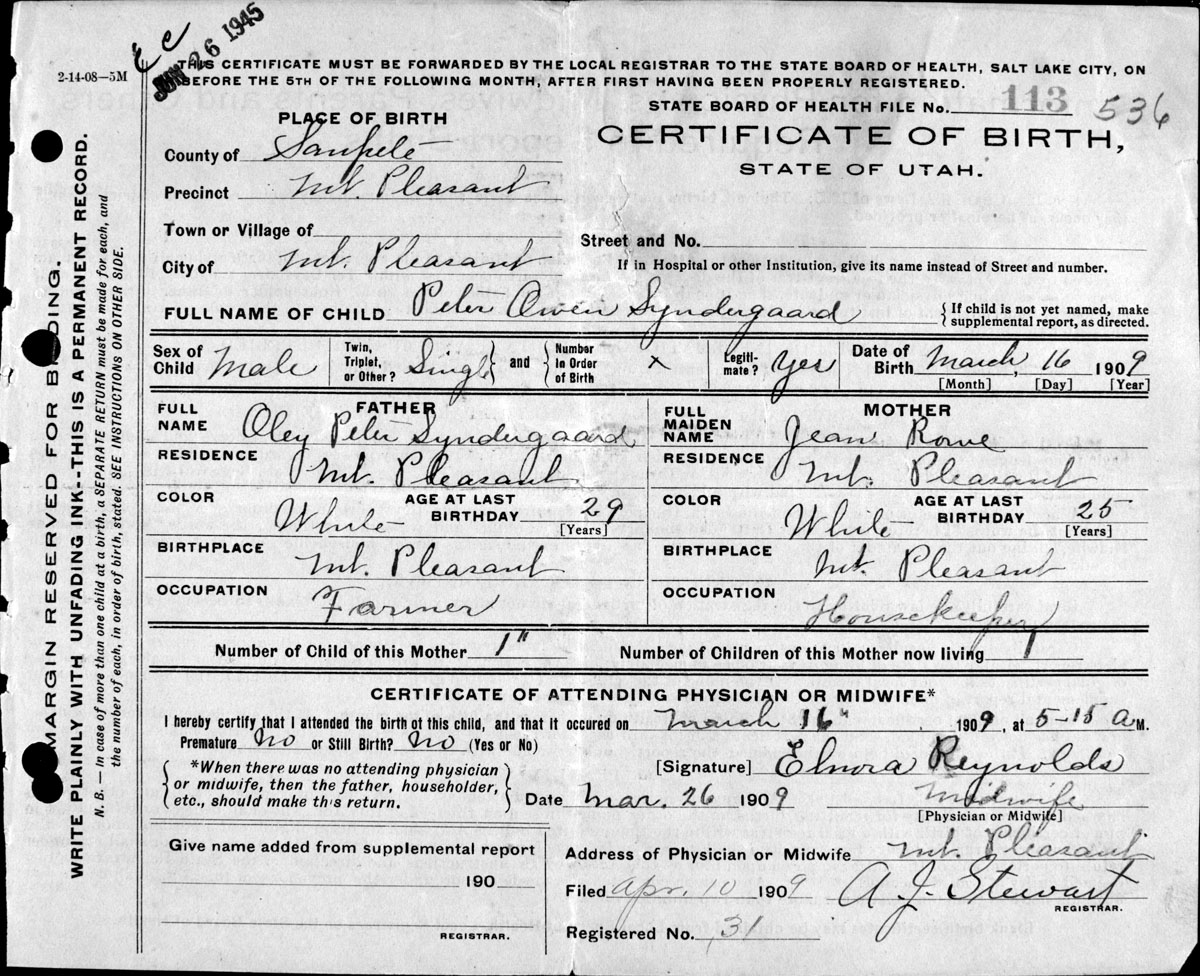 Ec
JUN 26 1945
2-14-08—5M
THIS CERTIFICATE MUST BE FORWARDED BY THE LOCAL REGISTRAR TO THE STATE BOARD OF HEALTH, SALT LAKE CITY, ON
BEFORE THE 5TH OF THE FOLLOWING MONTH, AFTER FIRST HAVING BEEN PROPERLY REGISTERED.
STATE BOARD OF HEALTH FILE No. 113 536
PLACE OF BIRTH
CERTIFICATE OF BIRTH,
STATE OF UTAH.
County of Sanpete
Precinct Mt. Pleasant
Town or Village of
Street and No.
City of Mt. Pleasant
If in Hospital or other Institution, give its name instead of Street and number.
FULL NAME OF CHILD Peter Owen Syndergaard { If child is not yet named, make supplemental report, as directed.
Sex of Child Male Twin, Triplet, or Other? Single } and { Number in Order of Birth x Legiti- mate? Yes Date of Birth March, 16 1909
[Month] [Day] [Year]
FATHER
FULL NAME Oley Peter Syndergaard
RESIDENCE Mt. Pleasant
COLOR White AGE AT LAST BIRTHDAY 29 [Years]
BIRTHPLACE Mt. Pleasant
OCCUPATION Farmer
MOTHER
FULL MAIDEN NAME Jean Rowe
RESIDENCE Mt. Pleasant
COLOR White AGE AT LAST BIRTHDAY 25 [Years]
BIRTHPLACE Mt. Pleasant
OCCUPATION Housekeeping
Number of Child of this Mother 1" Number of Children of this Mother now living 1
CERTIFICATE OF ATTENDING PHYSICIAN OR MIDWIFE*
I hereby certify that I attended the birth of this child, and that it occured on March 16" 1909, at 5-15 A M.
Premature No or Still Birth? No (Yes or No)
{ *When there was no attending physician
or midwife, then the father, householder,
etc., should make this return. }
[Signature] Elnora Reynolds
Date Mar. 26 1909 Midwife
[Physician or Midwife]
Give name added from supplemental report
190
REGISTRAR.
Address of Physician or Midwife Mt. Pleasant
Filed Apr. 10 1909 A. J. Stewart
REGISTRAR.
Registered No. 31
MARGIN RESERVED FOR BINDING.
WRITE PLAINLY WITH UNFADING INK--THIS IS A PERMANENT RECORD.
N. B.—In case of more than one child at a birth, a SEPARATE RETURN must be made for each, and
the number of each, in order of birth, stated. SEE INSTRUCTIONS ON OTHER SIDE.